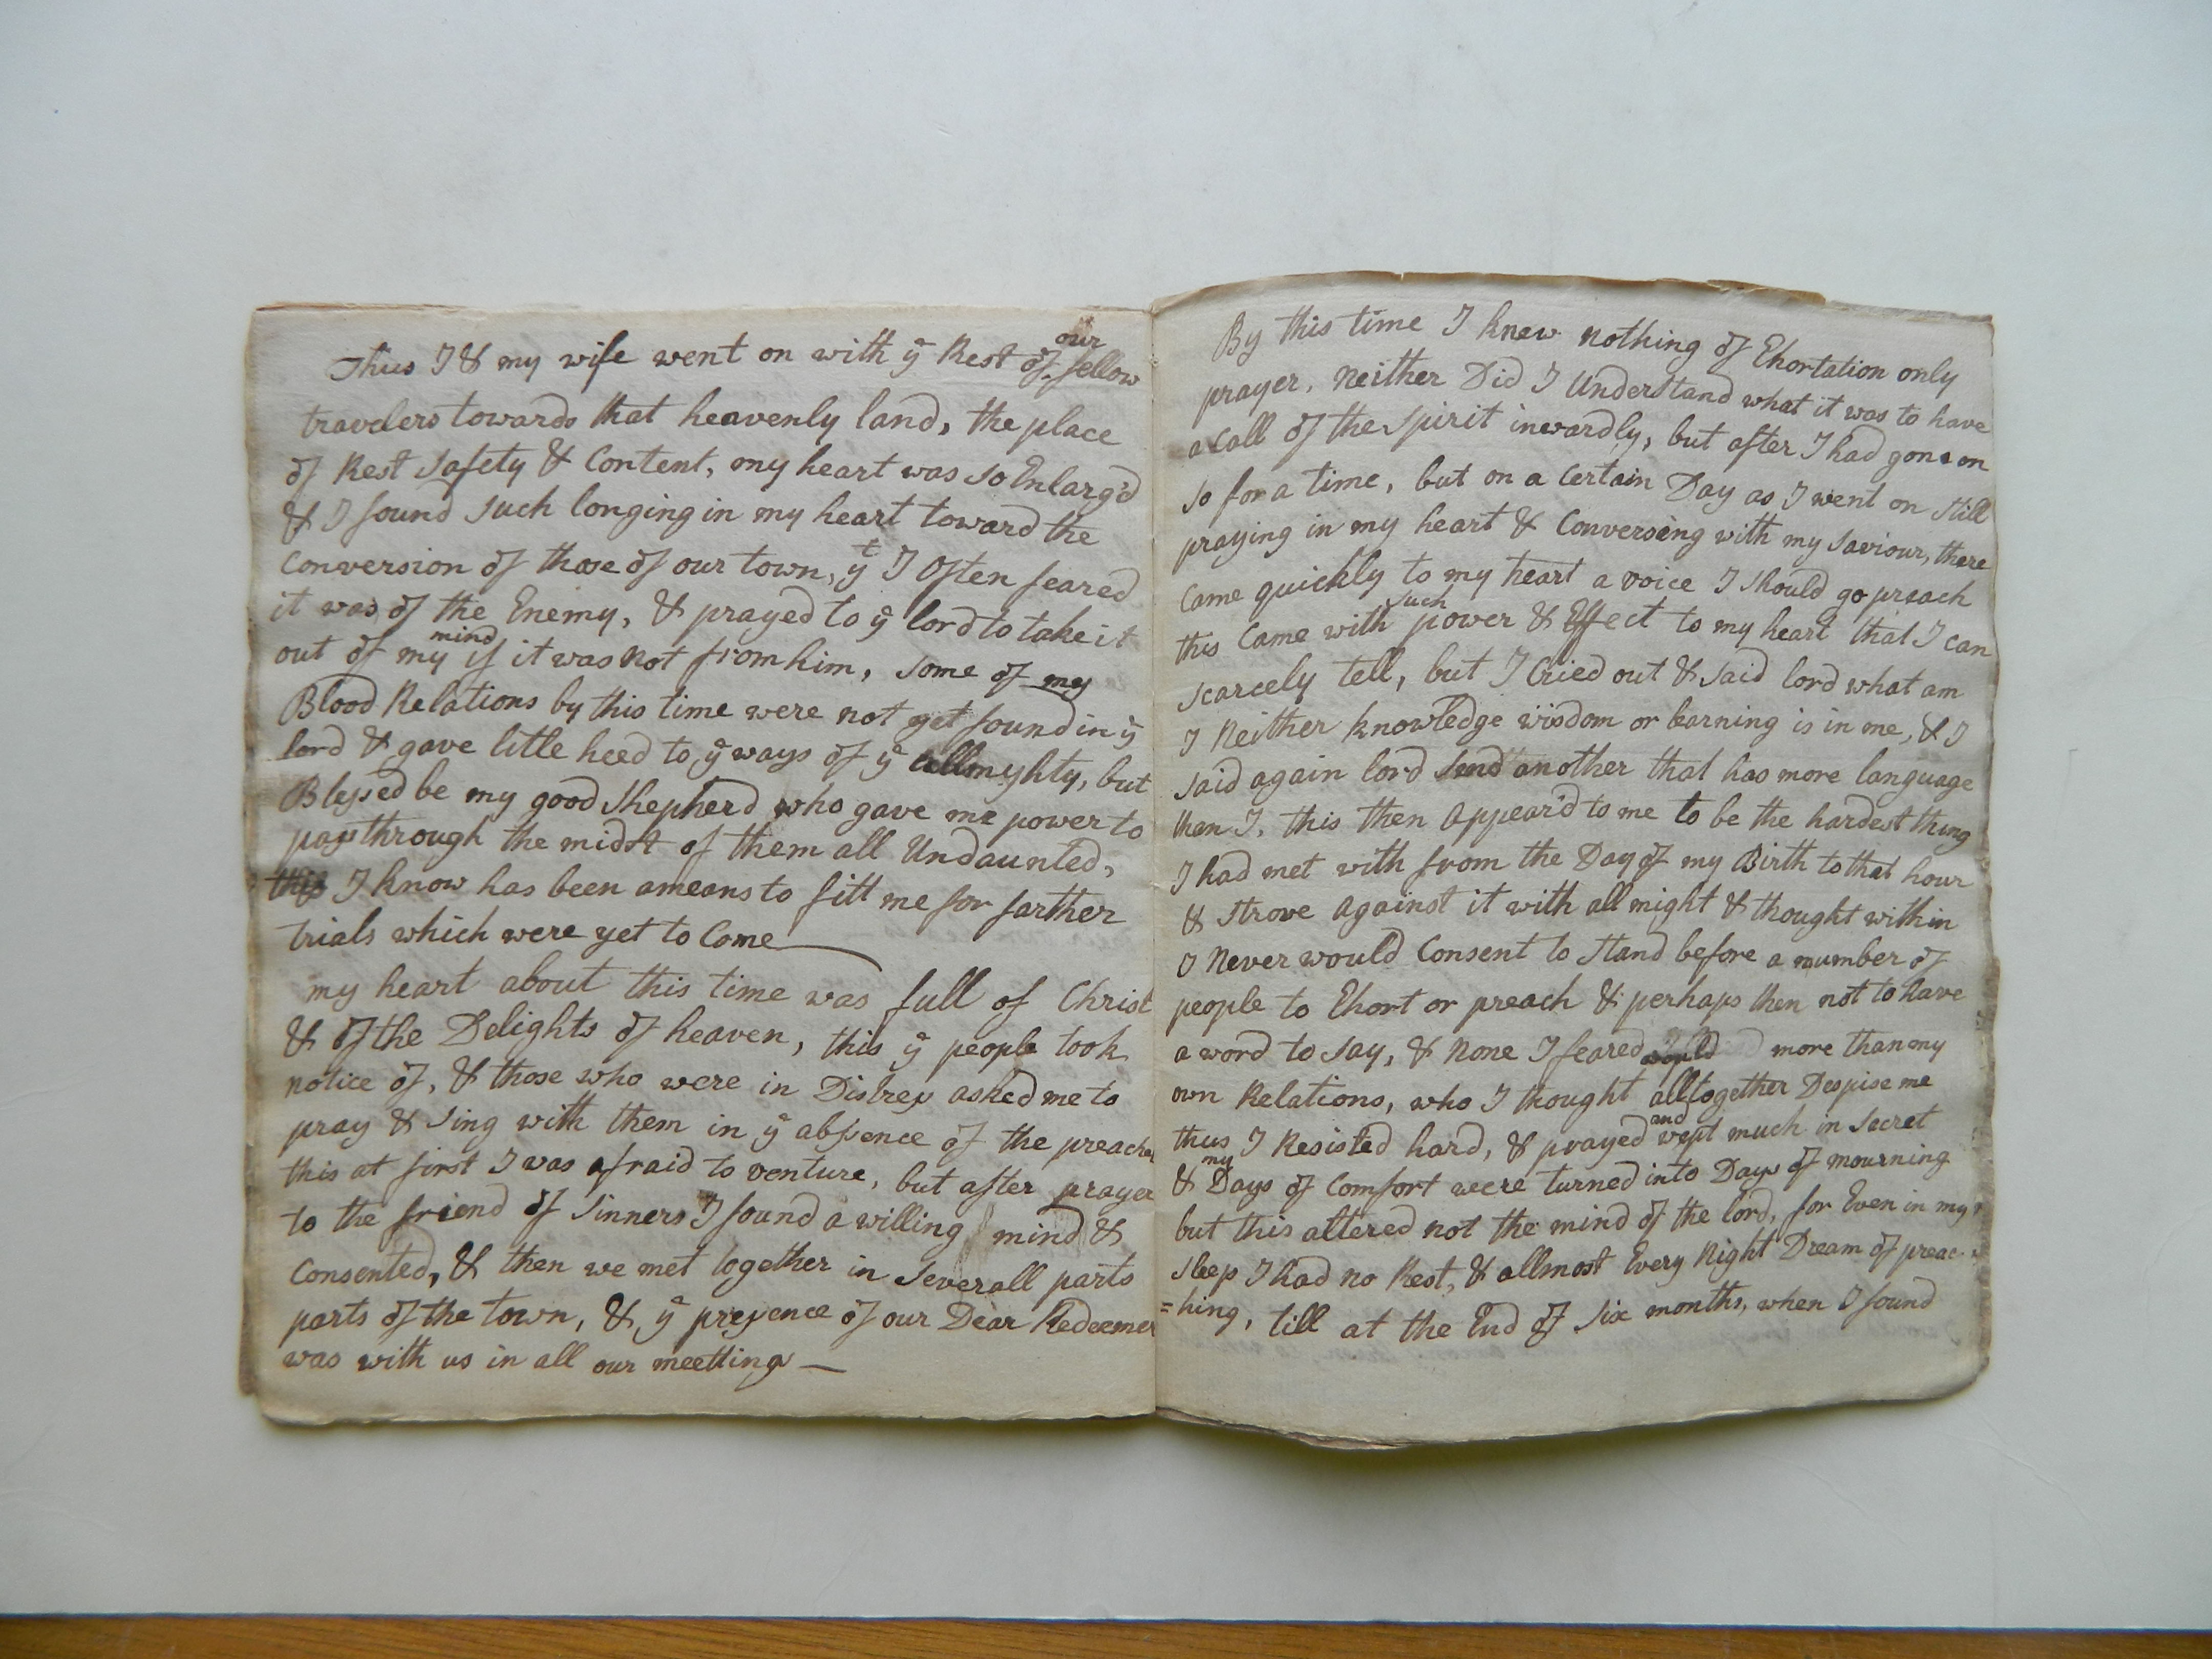 Thus I & my wife went on with ye Rest of our fellow
travelers towards that heavenly land, the place
of Rest Safety & Content, my heart was so Enlarg'd
& I found such longing in my heart toward the
Conversion of those of our town, yt I Often feared
it was of the Enemy, & prayed to ye lord to take it
out of my mind if it was not from him, some of my
Blood Relations by this time were not yet found in ye
lord & gave litle heed to ye ways of ye allmyhty, but
Blessed be my good Shepherd who gave me power to
pass through the midst of them all Undaunted,
this I know has been a means to fitt me for farther
trials which were yet to Come
my heart about this time was full of Christ
& of the Delights of heaven, this ye people took
notice of, & those who were in Distress asked me to
pray & Sing with them in ye abssence of the preacher
this at first I was afraid to venture, but after prayer
to the friend of Sinners I found a willing mind &
Consented, & then we met together in Severall parts
parts of the town, & ye pressence of our Dear Redeemer
was with us in all our meettings —
By this time I knew nothing of Ehortation only
prayer, neither Did I Understand what it was to have
a Call of the Spirit inwardly, but after I had gone on
so for a time, but on a Certain Day as I went on still
praying in my heart & Conversing with my Saviour, there
Came quickly to my heart a voice I should go preach
this Came with such power & Effect to my heart that I can
scarcely tell, but I Cried out & said lord what am
I Neither knowledge wisdom or learning is in me, & I
said again lord Send another that has more language
then I, this then Appear'd to me to be the hardest thing
I had met with from the Day of my Birth to that hour
& strove Against it with all might & thought within
I Never would Consent to Stand before a number of
people to Ehort or preach & perhaps then not to have
a word to say, & None I feared more than my
own Relations, who I thought would alltogether Despise me
thus I Resisted hard, & prayed and wept much in Secret
& my Days of Comfort were turned into Days of mourning
but this altered not the mind of the lord, for Even in my
sleep I had no Rest, & allmost Every Night Dream of preac
=hing, till at the End of Six months, when I found